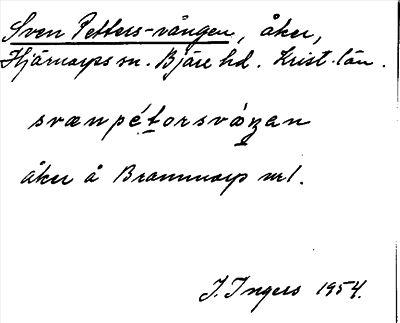 Sven Petters-vången, åker,
Hjärnarps sn. Bjäre hd. Krist. län.
svænpétorsváŋan
åker å Brammarp nr 1.
I. Ingers 1954.